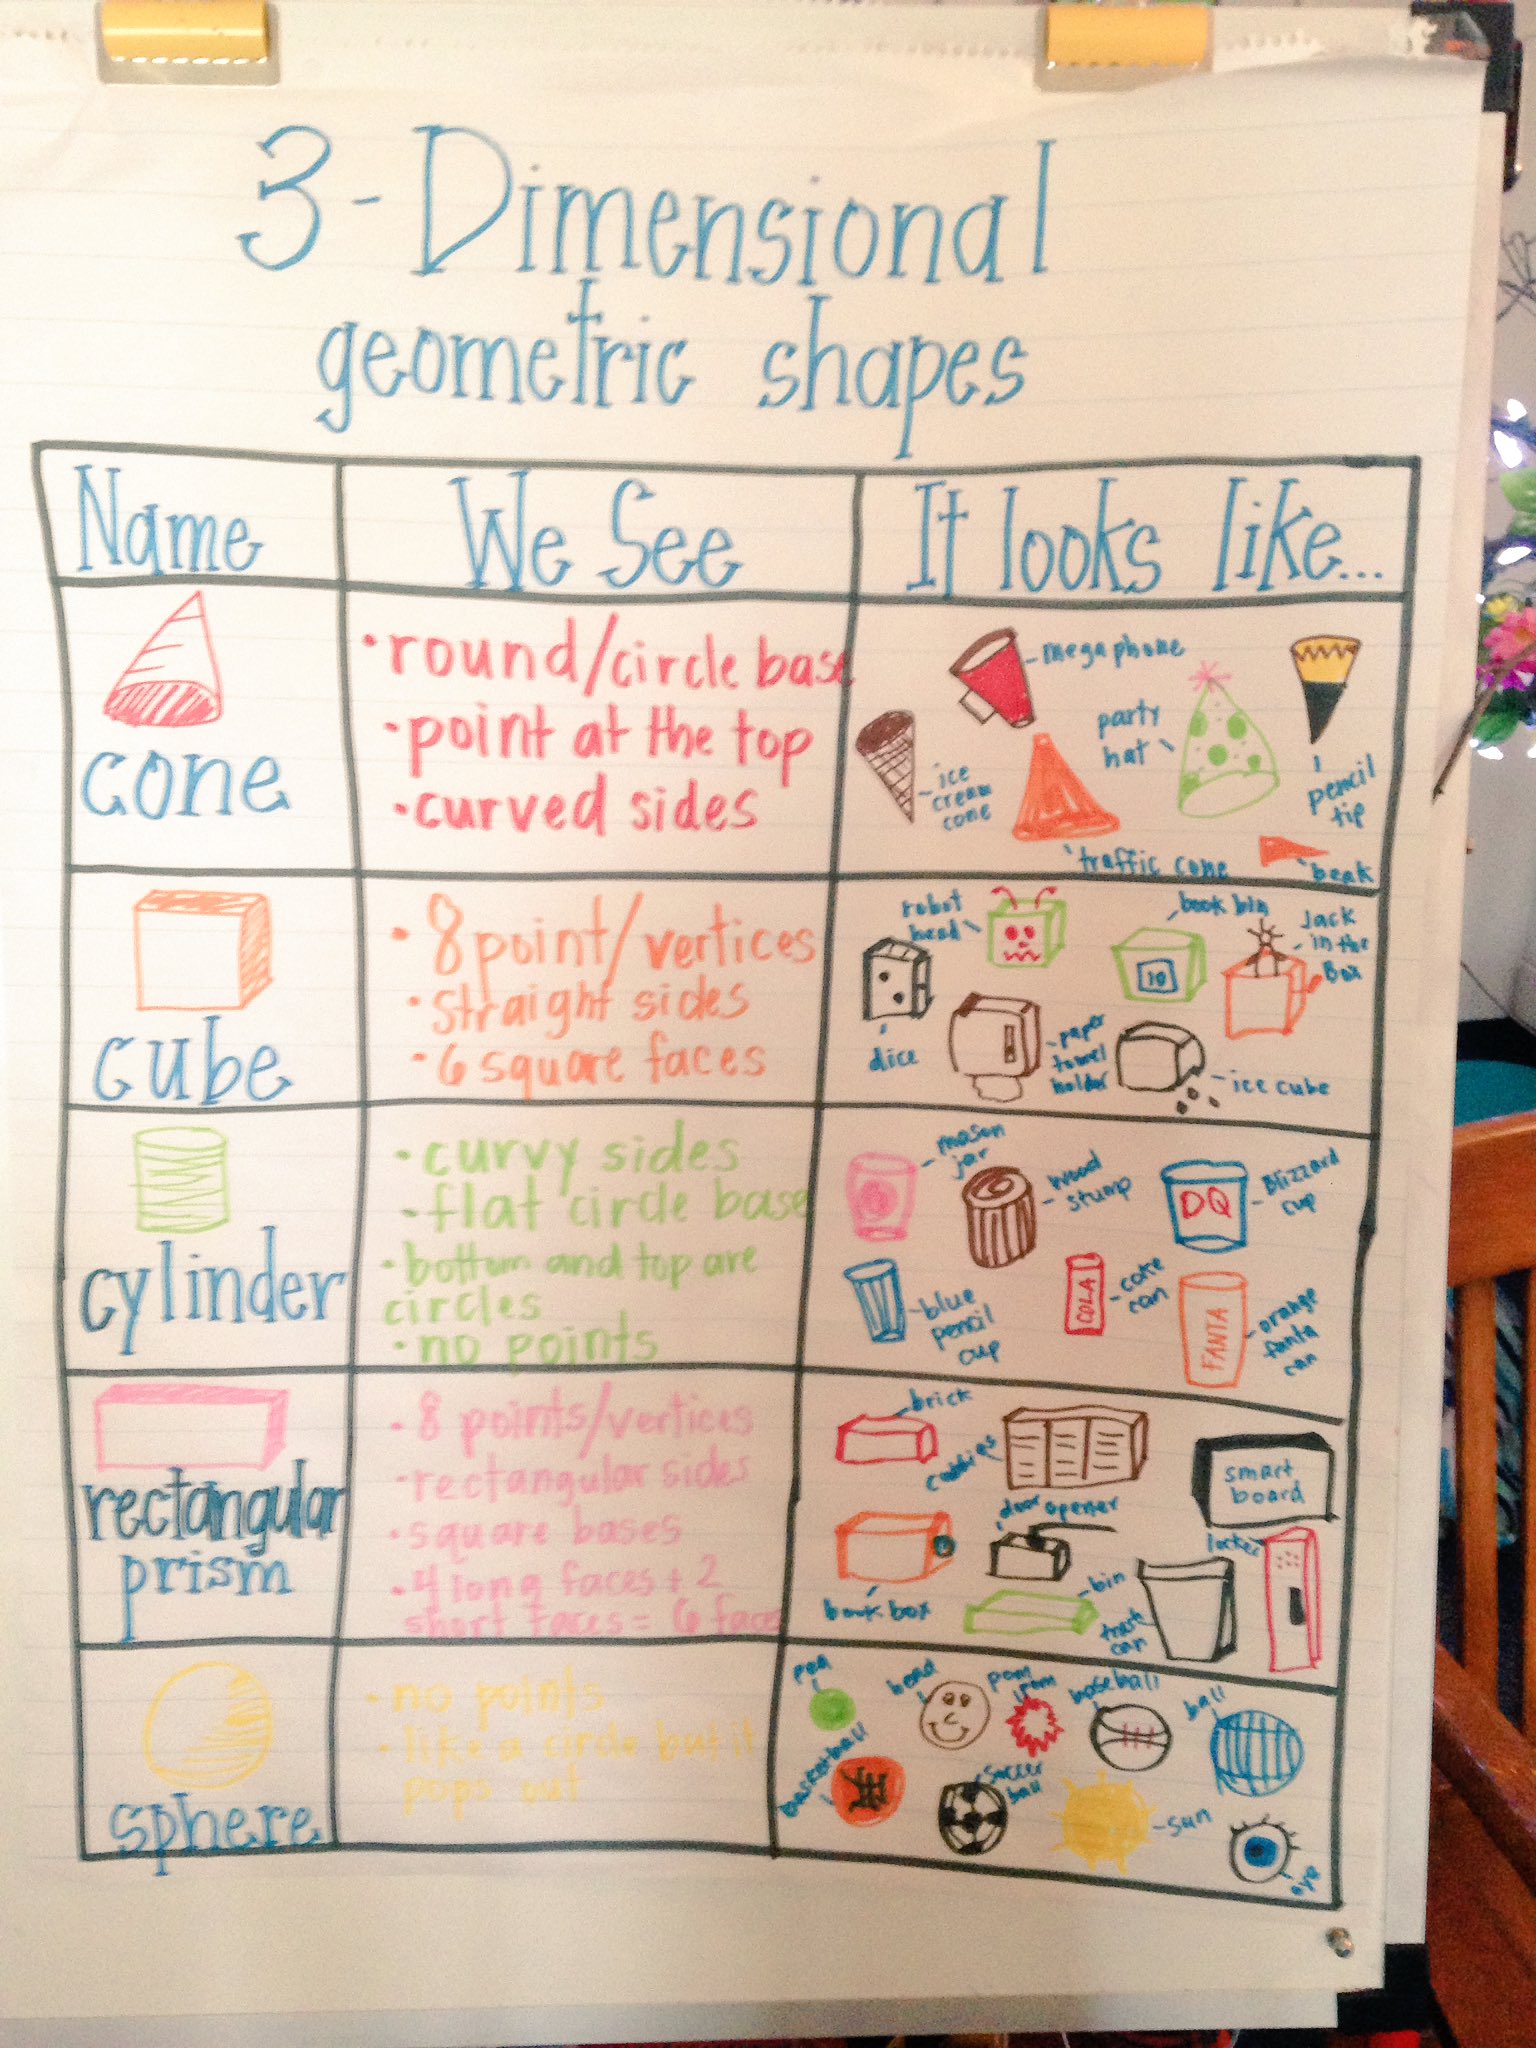 3-Dimensional
geometric shapes
Name
We See
It looks like...
cone
•round/circle base
•point at the top
•curved sides
megaphone
party
hat
pencil
tip
ice
cream
cone
traffic cone
beak
cube
•8 point/vertices
•straight sides
•6 square faces
robot
head
book bin
10
Jack
in the
Box
dice
paper
towel
holder
ice cube
cylinder
•curvy sides
•flat circle base
•bottom and top are
circles
•no points
mason
jar
wood
stump
DQ
Blizzard
cup
blue
pencil
cup
COLA
coke
can
FANTA
orange
fanta
can
rectangular
prism
•8 points/vertices
•rectangular sides
•square bases
•4 long faces + 2
short faces = 6 faces
brick
cubbies
smart
board
door opener
locker
book box
bin
trash
can
sphere
•no points
•like a circle but it
pops out
pea
bead
pom
pom
baseball
ball
basketball
soccer
ball
sun
eye